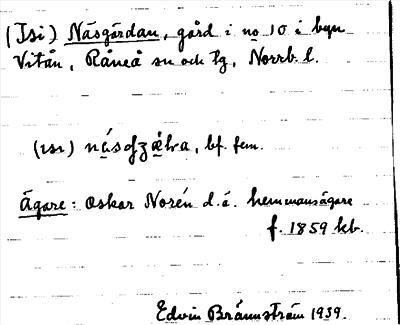 (Isi) Näsgärdan, gård i no 10 i byn
Vitån, Råneå sn och tg, Norrb. l.
(ısı) bf. fem.
Ägare: Oskar Norén d.ä. hemmansägare
f. 1859 kb.
Edvin Brännström 1939.